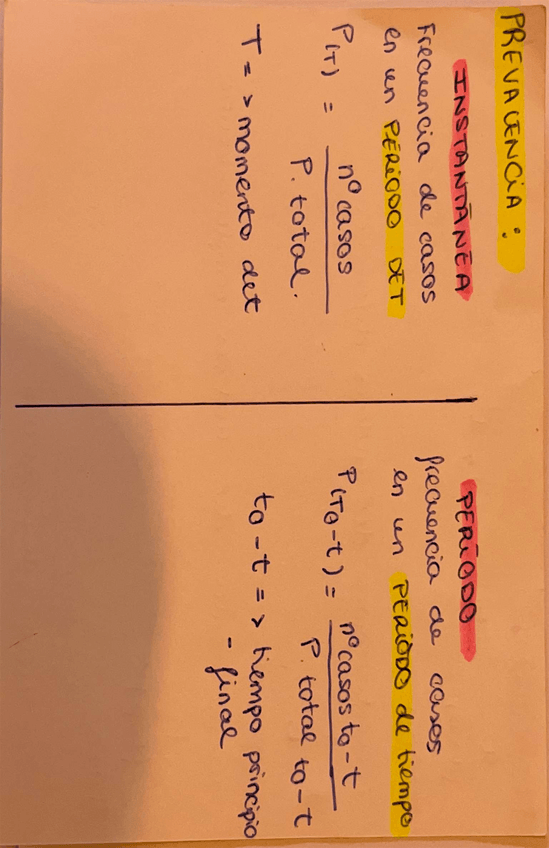 PREVALENCIA:
INSTANTÁNEA
Frecuencia de casos
en un PERÍODO DET
P(T) = nº casos
P. total.
T => momento det
PERÍODO
frecuencia de casos
en un PERÍODO de tiempo
P(To-t) = nº casos to-t
P. total to-t
to-t => tiempo principio
- final